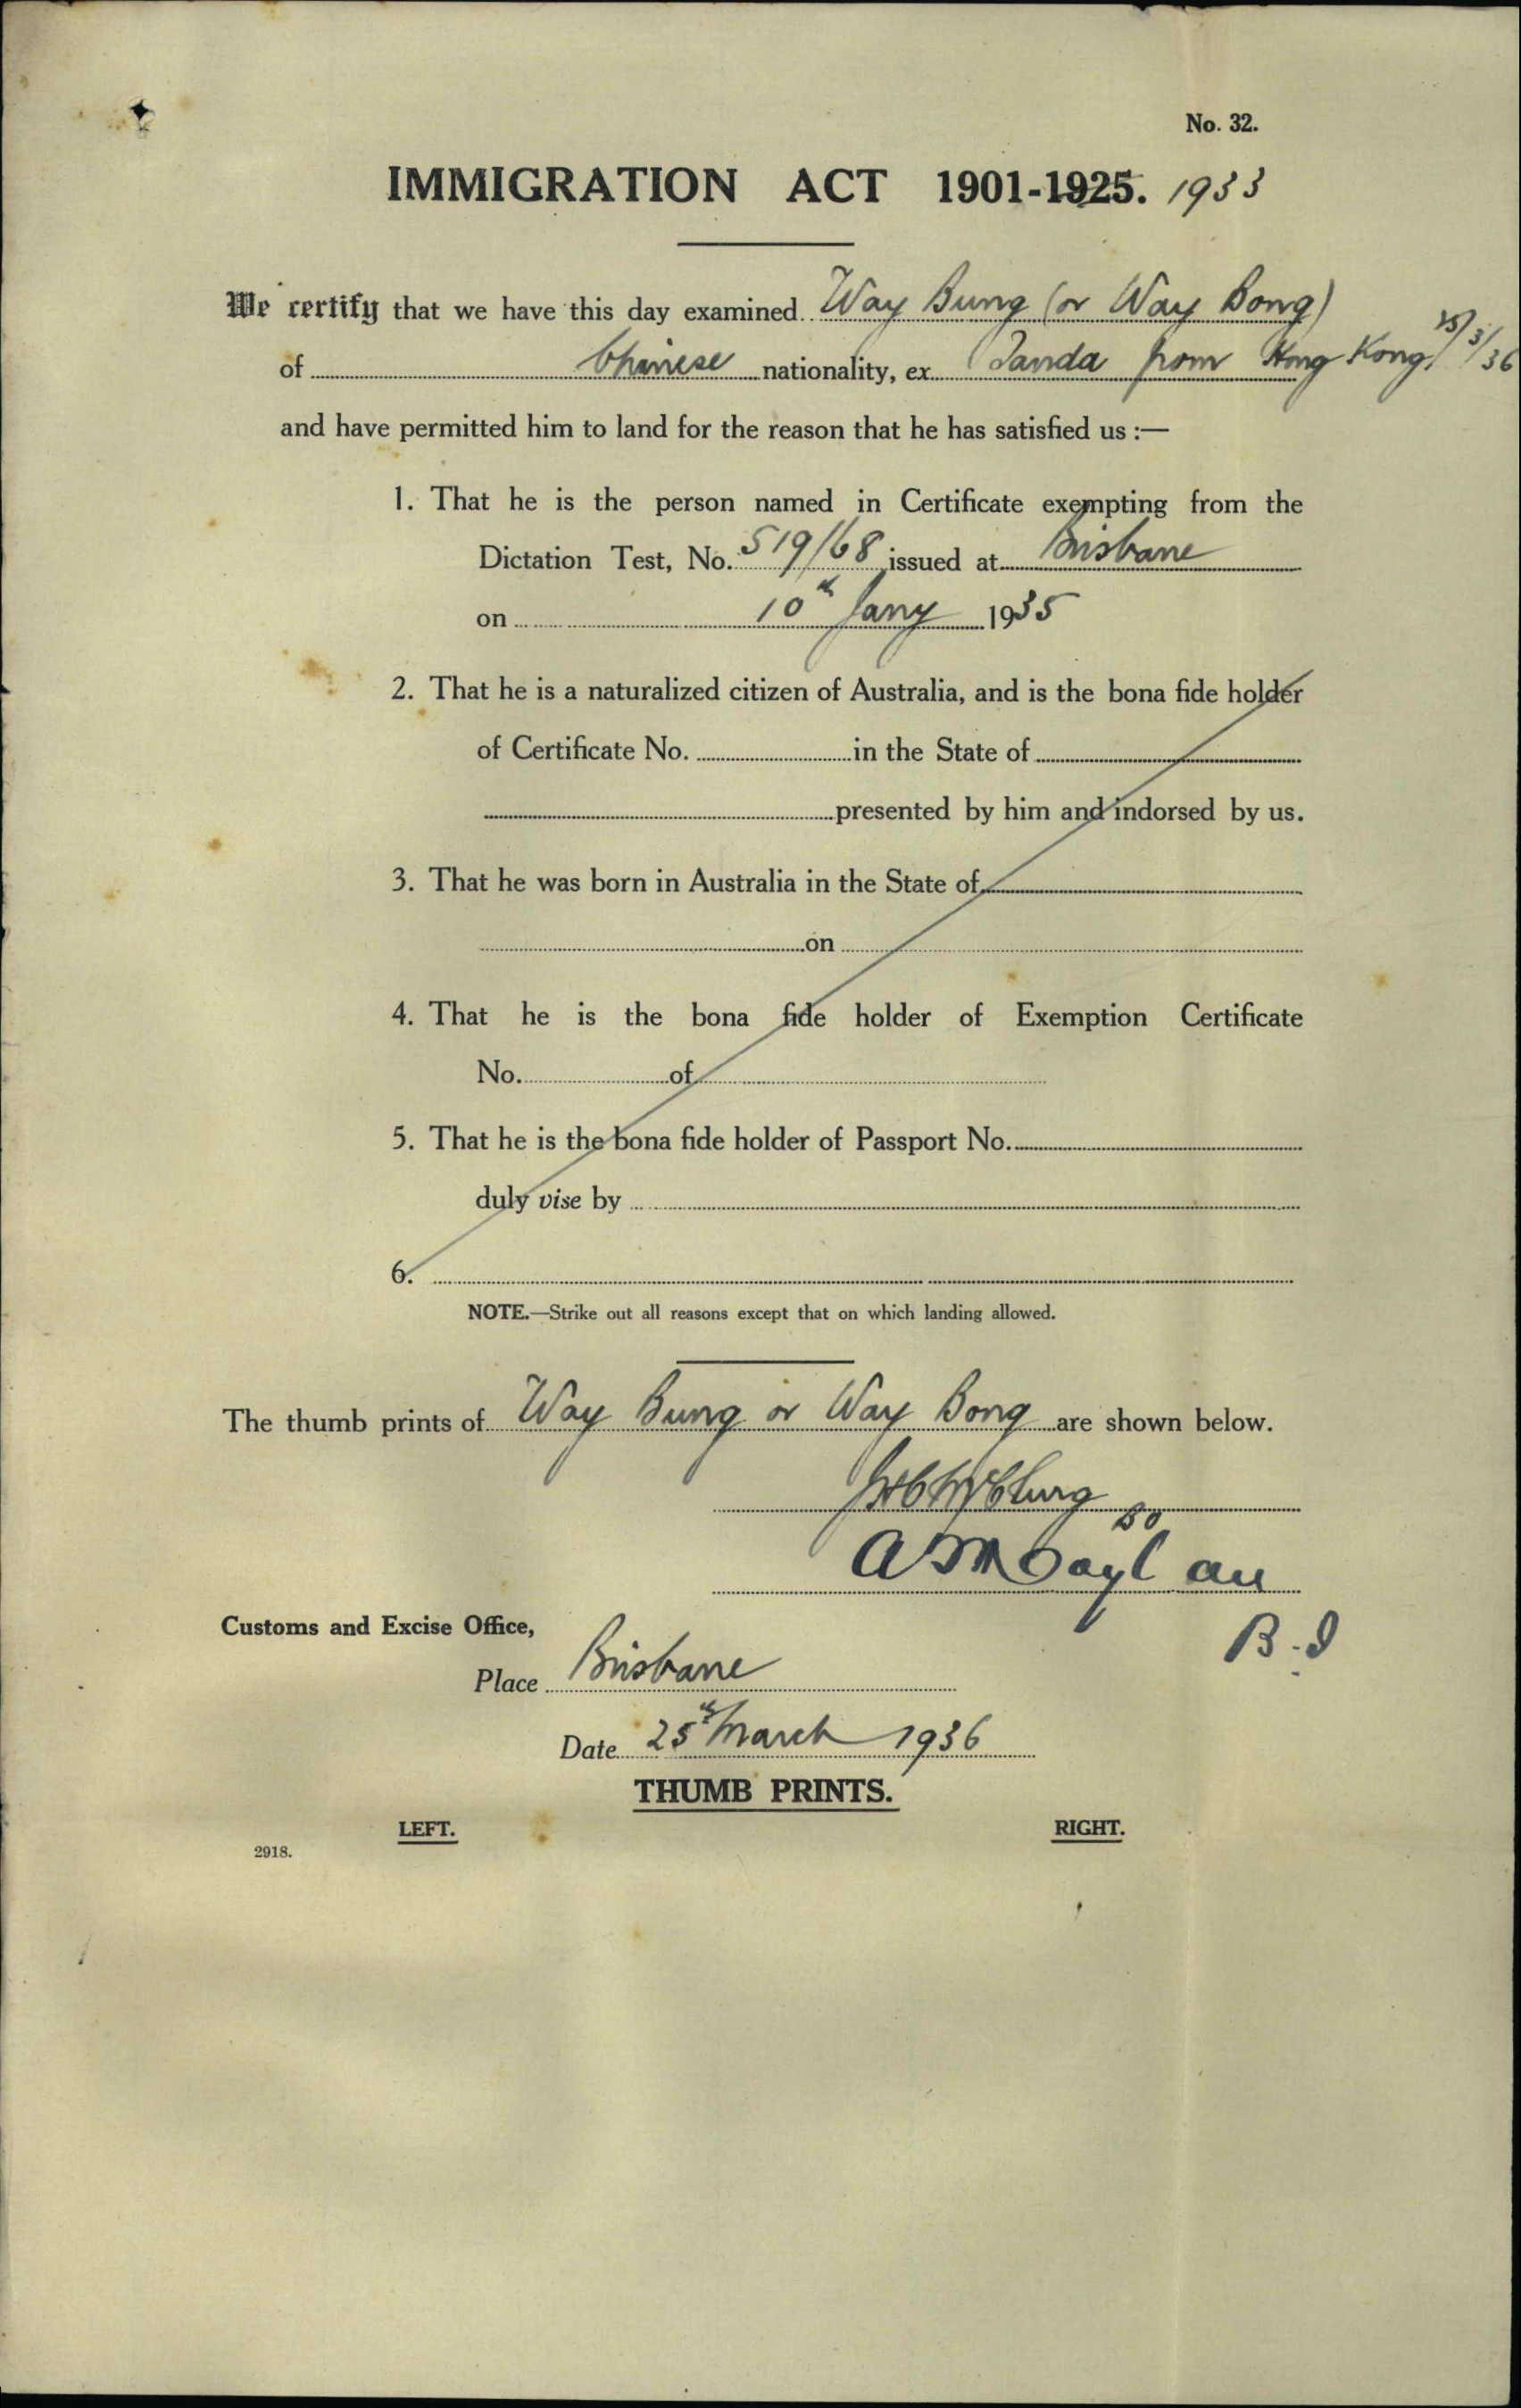 No. 32.
IMMIGRATION ACT 1901-1925. 1933
We certify that we have this day examined Way Bung (or Way Bong)
of Chinese nationality, ex Tanda from Hong Kong, 25/3/36
and have permitted him to land for the reason that he has satisfied us :—
1. That he is the person named in Certificate exempting from the
Dictation Test, No. 519/68 issued at Brisbane
on 10th Jany 1935
2. That he is a naturalized citizen of Australia, and is the bona fide holder
of Certificate No. in the State of
presented by him and indorsed by us.
3. That he was born in Australia in the State of
on
4. That he is the bona fide holder of Exemption Certificate
No. of
5. That he is the bona fide holder of Passport No.
duly vise by
6.
NOTE.—Strike out all reasons except that on which landing allowed.
The thumb prints of Way Bung or Way Bong are shown below.
Customs and Excise Office,
Place Brisbane
Date 25th March 1936
THUMB PRINTS.
LEFT. RIGHT.
2918.